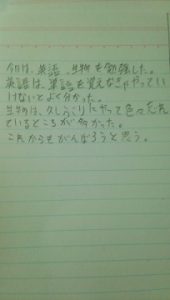 今日は、英語、生物を勉強した。
英語は、単語を覚えなきゃやってい
けないとよく分かった。
生物は、久しぶりにやって色々忘れ
ているところが多かった。
これからもがんばろうと思う。